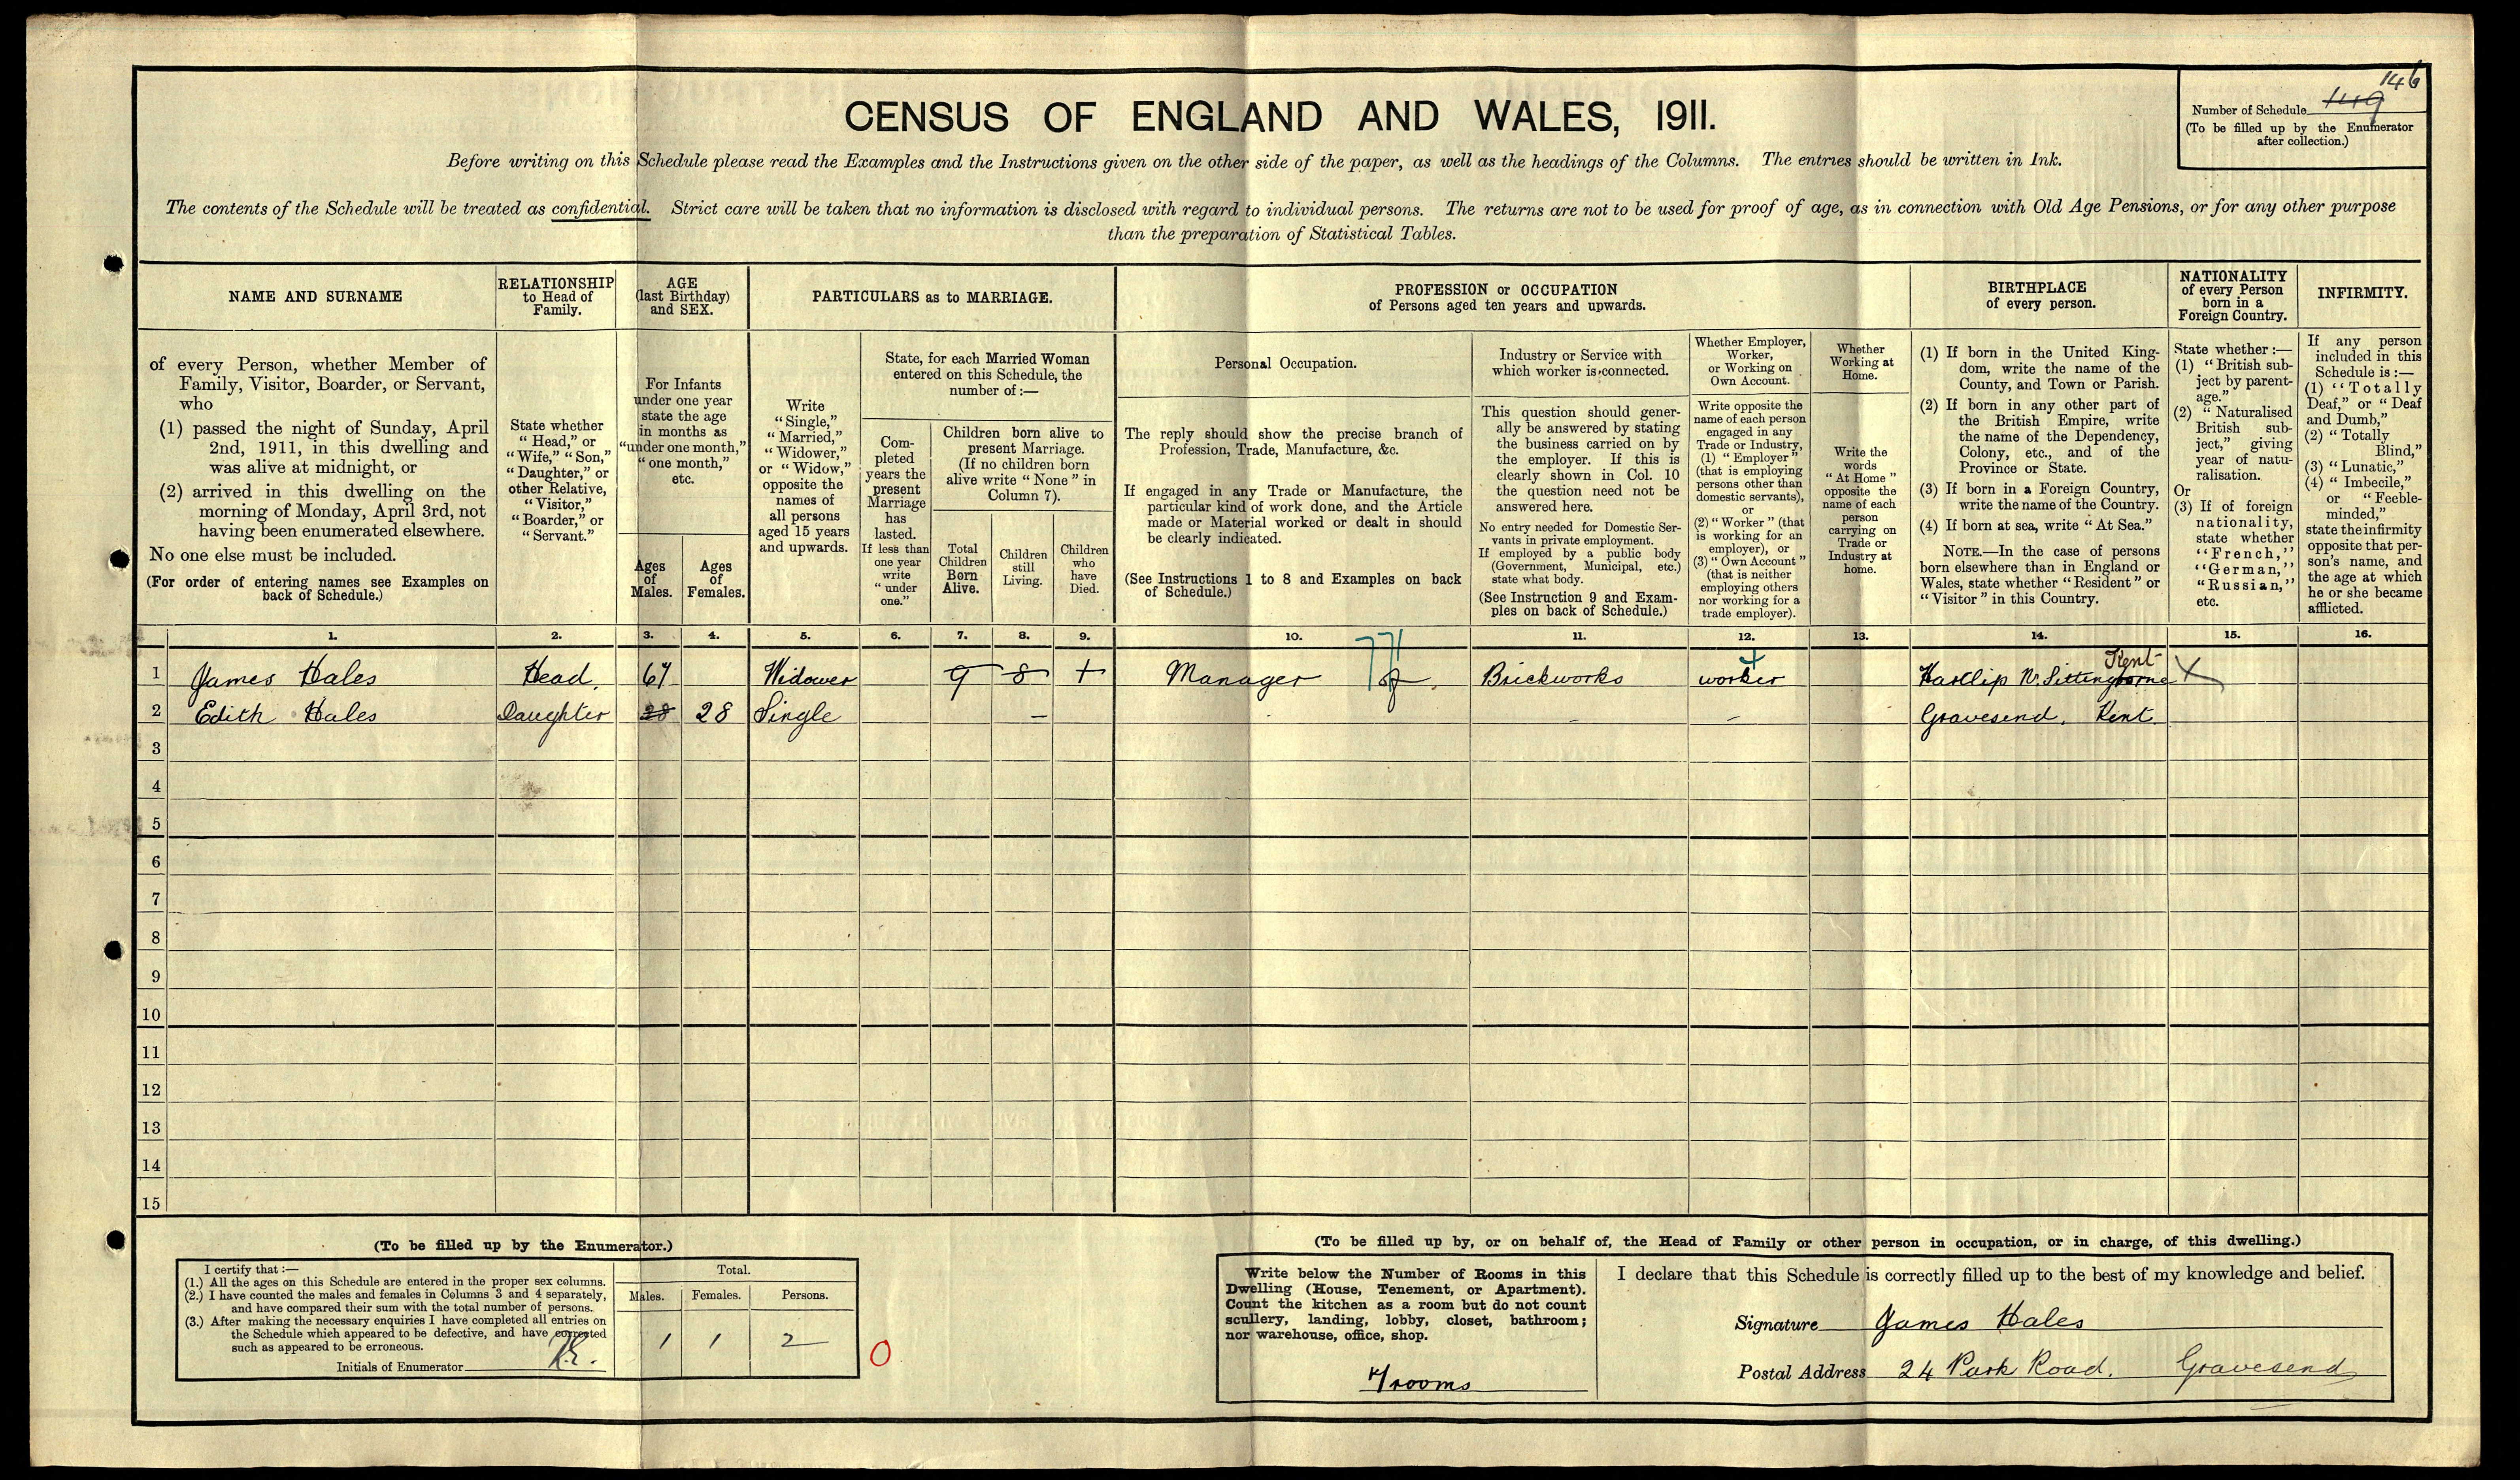 146
Number of Schedule 149
(To be filled up by the Enumerator
after collection.)
CENSUS OF ENGLAND AND WALES, 1911.
Before writing on this Schedule please read the Examples and the Instructions given on the other side of the paper, as well as the headings of the Columns. The entries should be written in Ink.
The contents of the Schedule will be treated as confidential. Strict care will be taken that no information is disclosed with regard to individual persons. The returns are not to be used for proof of age, as in connection with Old Age Pensions, or for any other purpose
than the preparation of Statistical Tables.
NAME AND SURNAME
of every Person, whether Member of
Family, Visitor, Boarder, or Servant,
who
(1) passed the night of Sunday, April
2nd, 1911, in this dwelling and
was alive at midnight, or
(2) arrived in this dwelling on the
morning of Monday, April 3rd, not
having been enumerated elsewhere.
No one else must be included.
(For order of entering names see Examples on
back of Schedule.)
RELATIONSHIP
to Head of
Family.
State whether
"Head," or
"Wife," "Son,"
"Daughter," or
other Relative,
"Visitor,"
"Boarder," or
"Servant."
AGE
(last Birthday)
and SEX.
For Infants
under one year
state the age
in months as
"under one month,"
"one month,"
etc.
Ages
of
Males.
Ages
of
Females.
PARTICULARS as to MARRIAGE.
Write
"Single,"
"Married,"
"Widower,"
or "Widow,"
opposite the
names of
all persons
aged 15 years
and upwards.
State, for each Married Woman
entered on this Schedule, the
number of:—
Com-
pleted
years the
present
Marriage
has
lasted.
If less than
one year
write
"under
one."
Children born alive to
present Marriage.
(If no children born
alive write "None" in
Column 7).
Total
Children
Born
Alive.
Children
still
Living.
Children
who
have
Died.
PROFESSION or OCCUPATION
of Persons aged ten years and upwards.
Personal Occupation.
The reply should show the precise branch of
Profession, Trade, Manufacture, &c.
If engaged in any Trade or Manufacture, the
particular kind of work done, and the Article
made or Material worked or dealt in should
be clearly indicated.
(See Instructions 1 to 8 and Examples on back
of Schedule.)
Industry or Service with
which worker is connected.
This question should gener-
ally be answered by stating
the business carried on by
the employer. If this is
clearly shown in Col. 10
the question need not be
answered here.
No entry needed for Domestic Ser-
vants in private employment.
If employed by a public body
(Government, Municipal, etc.)
state what body.
(See Instruction 9 and Exam-
ples on back of Schedule.)
Whether Employer,
Worker,
or Working on
Own Account.
Write opposite the
name of each person
engaged in any
Trade or Industry,
(1) "Employer"
(that is employing
persons other than
domestic servants),
or
(2) "Worker" (that
is working for an
employer), or
(3) "Own Account"
(that is neither
employing others
nor working for a
trade employer).
Whether
Working at
Home.
Write the
words
"At Home"
opposite the
name of each
person
carrying on
Trade or
Industry at
home.
BIRTHPLACE
of every person.
(1) If born in the United King-
dom, write the name of the
County, and Town or Parish.
(2) If born in any other part of
the British Empire, write
the name of the Dependency,
Colony, etc., and of the
Province or State.
(3) If born in a Foreign Country,
write the name of the Country.
(4) If born at sea, write "At Sea."
NOTE.—In the case of persons
born elsewhere than in England or
Wales, state whether "Resident" or
"Visitor" in this Country.
NATIONALITY
of every Person
born in a
Foreign Country.
State whether:—
(1) "British sub-
ject by parent-
age."
(2) "Naturalised
British sub-
ject," giving
year of natu-
ralisation.
Or
(3) If of foreign
nationality,
state whether
"French,"
"German,"
"Russian,"
etc.
INFIRMITY.
If any person
included in this
Schedule is:—
(1) "Totally
Deaf," or "Deaf
and Dumb,"
(2) "Totally
Blind,"
(3) "Lunatic,"
(4) "Imbecile,"
or "Feeble-
minded,"
state the infirmity
opposite that per-
son's name, and
the age at which
he or she became
afflicted.
1. 2. 3. 4. 5. 6. 7. 8. 9. 10. 11. 12. 13. 14. 15. 16.
Kent
1 James Hales Head. 67 Widower 9 8 1 Manager Brickworks worker Hartlip Nr. Sittingborne
2 Edith Hales Daughter 28 28 Single — – – Gravesend. Kent
3
4
5
6
7
8
9
10
11
12
13
14
15
(To be filled up by the Enumerator.)
I certify that:—
(1.) All the ages on this Schedule are entered in the proper sex columns.
(2.) I have counted the males and females in Columns 3 and 4 separately,
and have compared their sum with the total number of persons.
(3.) After making the necessary enquiries I have completed all entries on
the Schedule which appeared to be defective, and have corrected
such as appeared to be erroneous.
Initials of Enumerator
Total.
Males. Females. Persons.
1 1 2
0
(To be filled up by, or on behalf of, the Head of Family or other person in occupation, or in charge, of this dwelling.)
Write below the Number of Rooms in this
Dwelling (House, Tenement, or Apartment).
Count the kitchen as a room but do not count
scullery, landing, lobby, closet, bathroom;
nor warehouse, office, shop.
rooms
I declare that this Schedule is correctly filled up to the best of my knowledge and belief.
Signature James Hales
Postal Address 24 Park Road. Gravesend